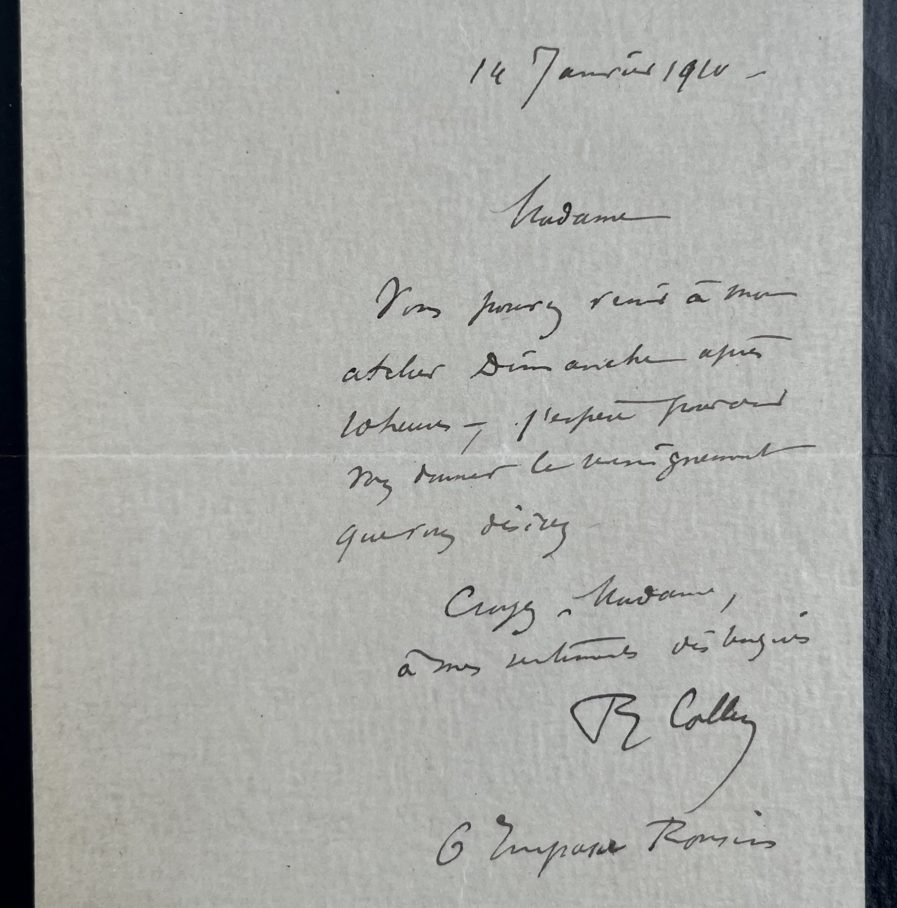 14 Janvier 1910 -
Madame
Vous pouvez venir à mon
atelier Dimanche après
10 heures -, j'espère pouvoir
vous donner le renseignement
que vous désirez
Croyez, Madame,
à mes sentiments distingués
R Collin
6 Impasse Ronsin